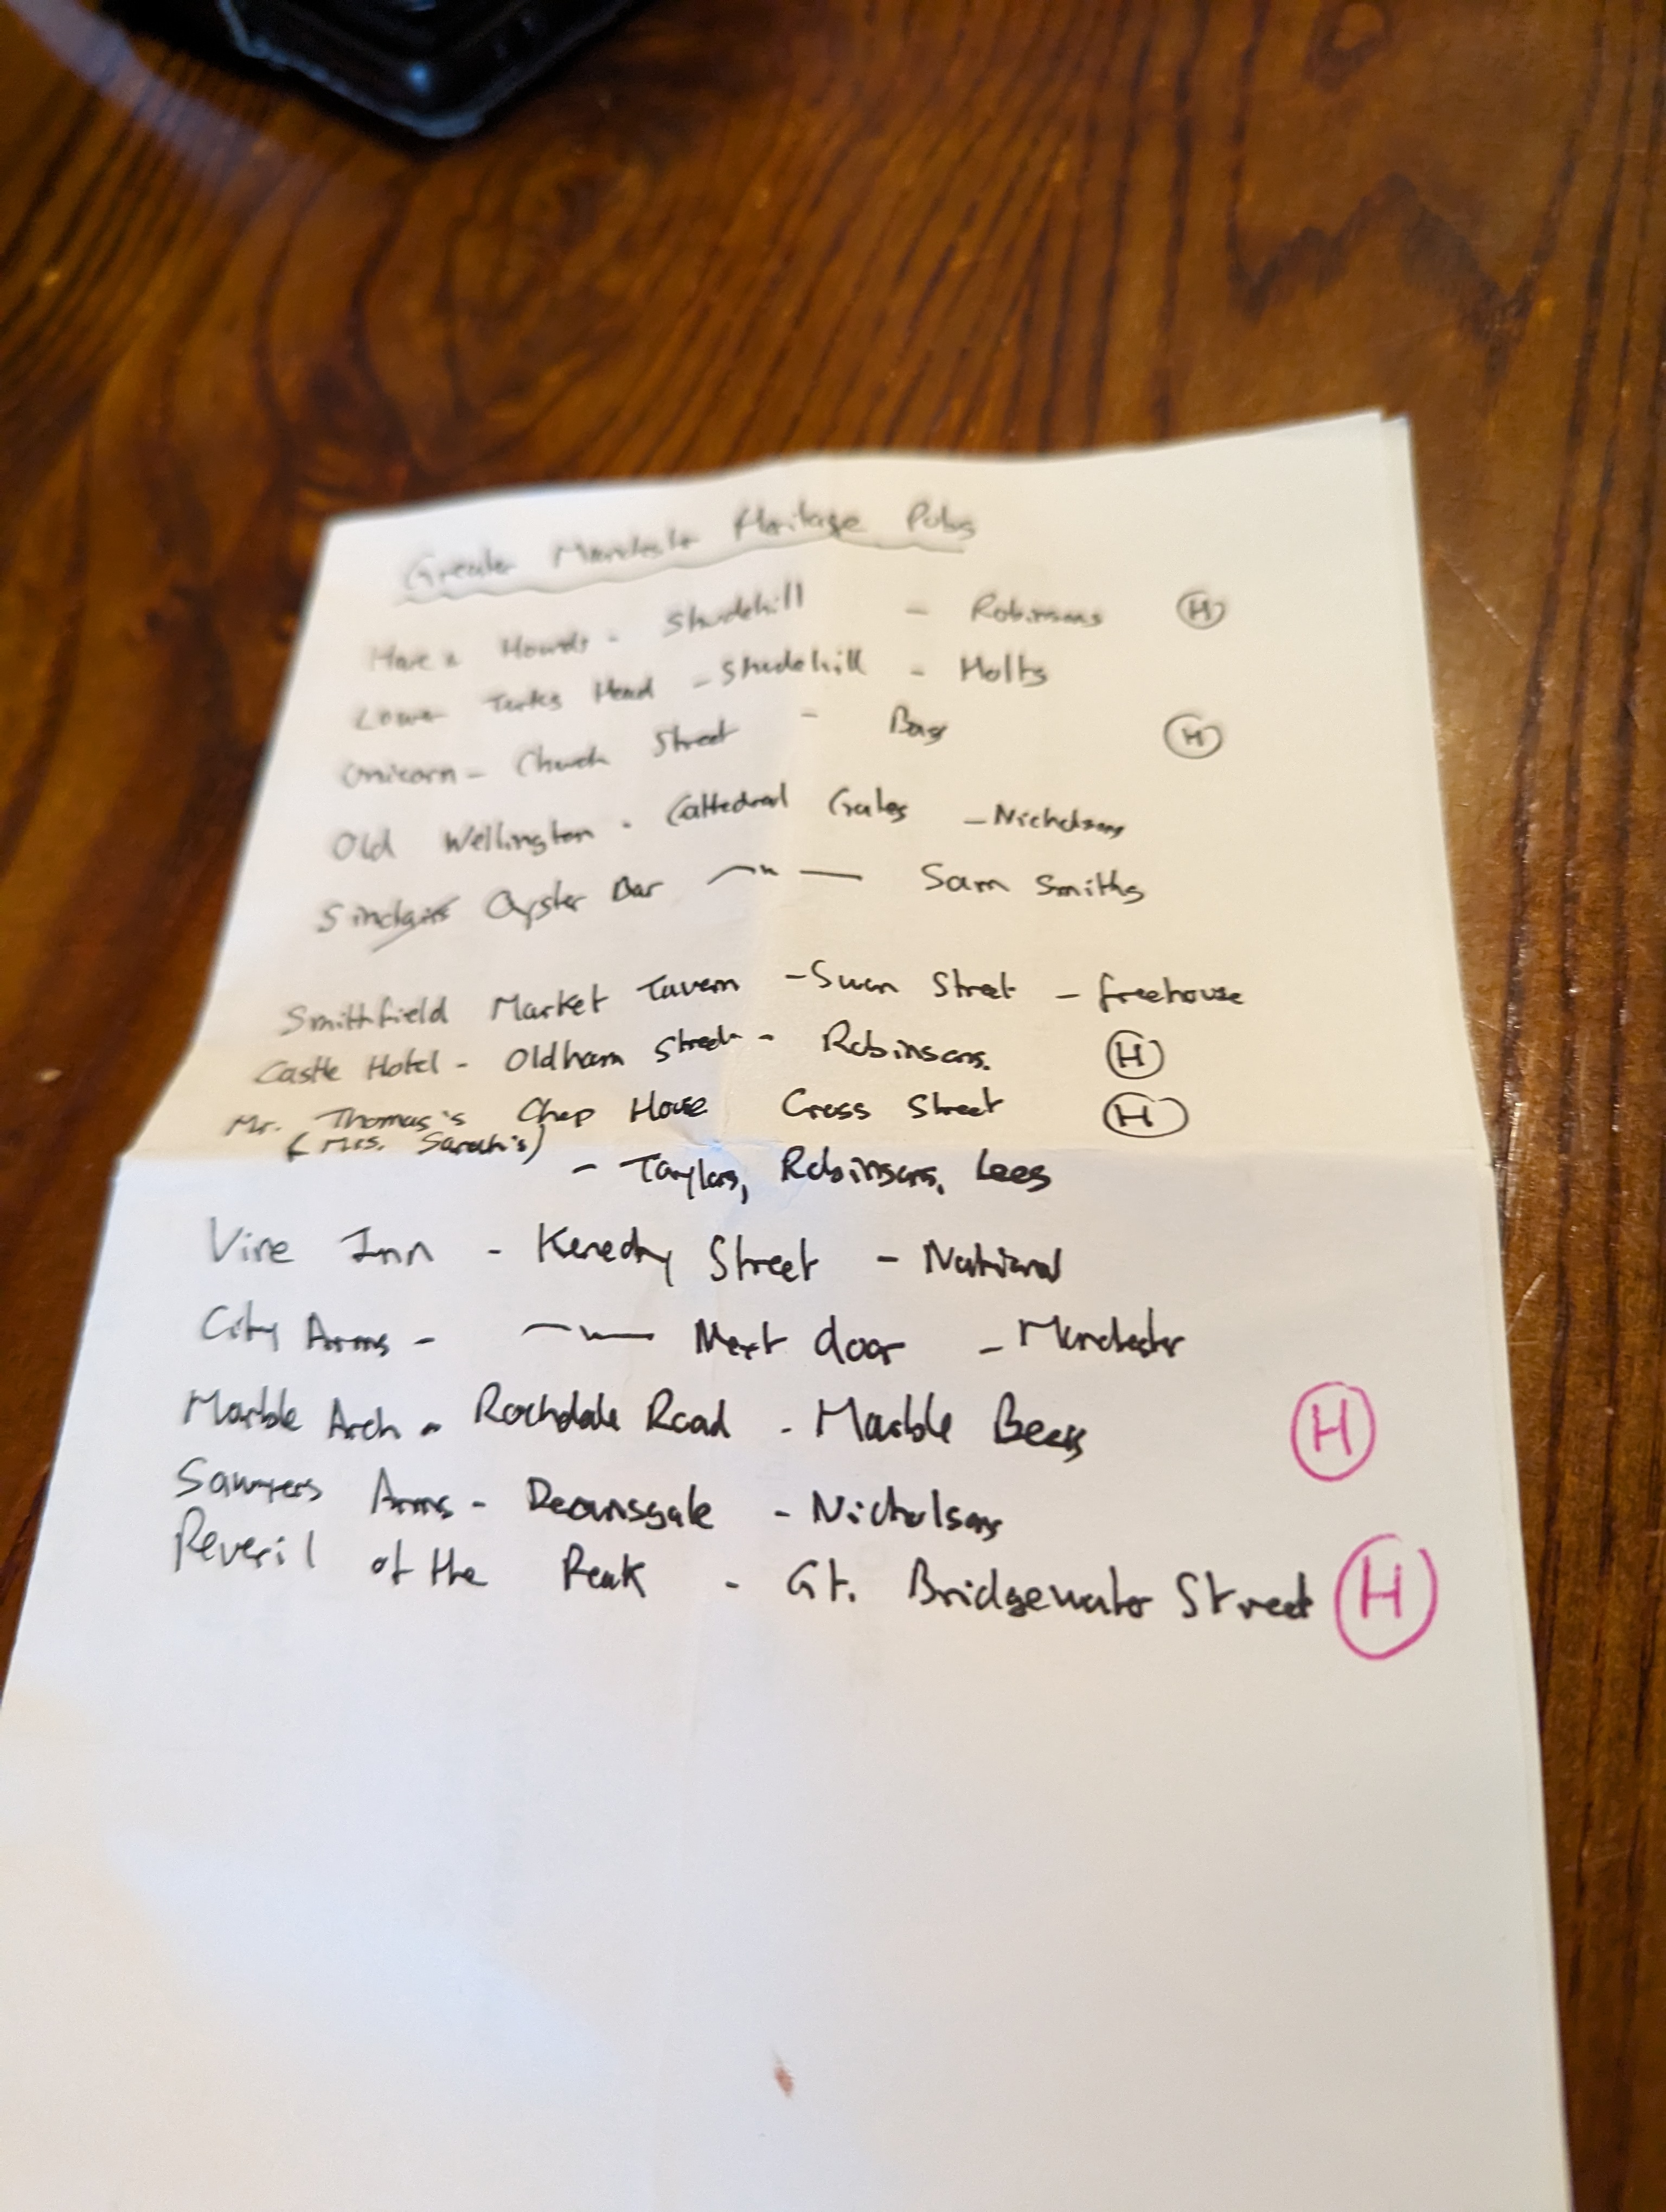 Greater Manchester Heritage Pubs
Hare n Hounds - Shudehill - Robinsons H
Lower Turks Head - Shudehill - Holts
Unicorn - Church Street - Bass H
Old Wellington - Cathedral Gates - Nicholsons
Sinclairs Oyster Bar — " — Sam Smiths
Smithfield Market Tavern - Swan Street - freehouse
Castle Hotel - Oldham Street - Robinsons. H
Mr. Thomas's Chop House Cross Street H
(Mrs. Sarah's)
- Taylors, Robinsons, Lees
Vine Inn - Kenedy Street - National
City Arms - — " — Next door - Manchester
Marble Arch - Rochdale Road - Marble Beers H
Sawyers Arms - Deansgate - Nicholsons
Peveril of the Peak - Gt. Bridgewater Street H